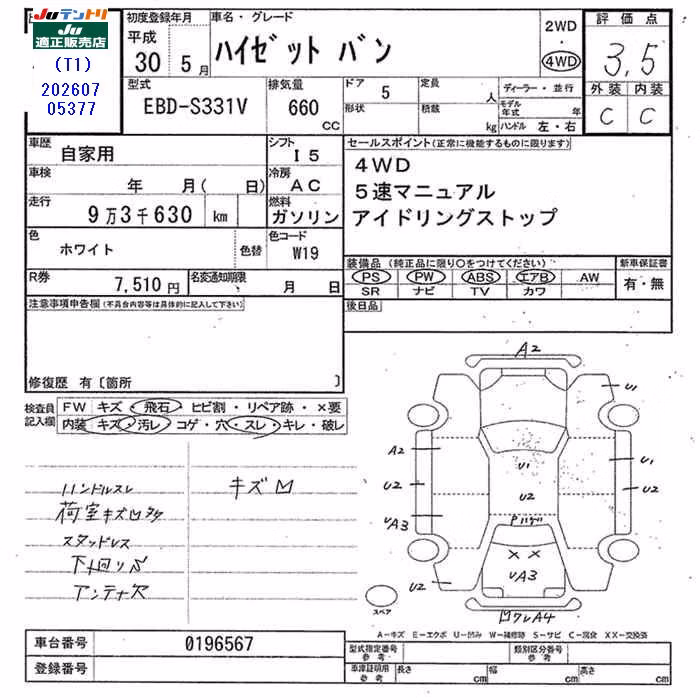 JUテントリ
JU
適正販売店
(T1)
202607
05377
初度登録年月
平成
30 5月
車名・グレード
ハイゼット バン
2WD
4WD
評価点
3.5
外装 内装
C C
型式
EBD-S331V
排気量
660
CC
ドア 5
形状
定員 人
積載 kg
ディーラー・並行
モデル年式 年
ハンドル 左・右
車歴
自家用
シフト
I5
車検
年 月( 日)
冷房
AC
走行
9万3千630 km
燃料
ガソリン
色
ホワイト
色替
色コード
W19
R券
7,510円
名変通知期限
月 日
セールスポイント(正常に機能するものに限ります)
4WD
5速マニュアル
アイドリングストップ
装備品 (純正品に限り○をつけてください)
PS PW ABS エアB AW
SR ナビ TV カワ
新車保証書
有・無
後日品
注意事項申告欄(不具合内容等は具体的に記入して下さい)
修復歴 有〔箇所 〕
検査員
記入欄
FW キズ・飛石・ヒビ割・リペア跡・×要
内装 キズ・汚レ・コゲ・穴・スレ・キレ・破レ
ハンドルスレ
荷室キズ凹多
スタッドレス
下回りS
アンテナ欠
キズ凹
A2
U1
A2
U2
UA3
U2
U1
U2
Pハゲ
××
UA3
U1
U2
凹ワレA4
スペア
A-キズ E-エクボ U-凹み W-補修跡 S-サビ C-腐食 XX-交換済
車台番号
0196567
登録番号
型式指定番号
参考
類別区分番号
参考
車庫証明用
参考
長さ cm
幅 cm
高さ cm